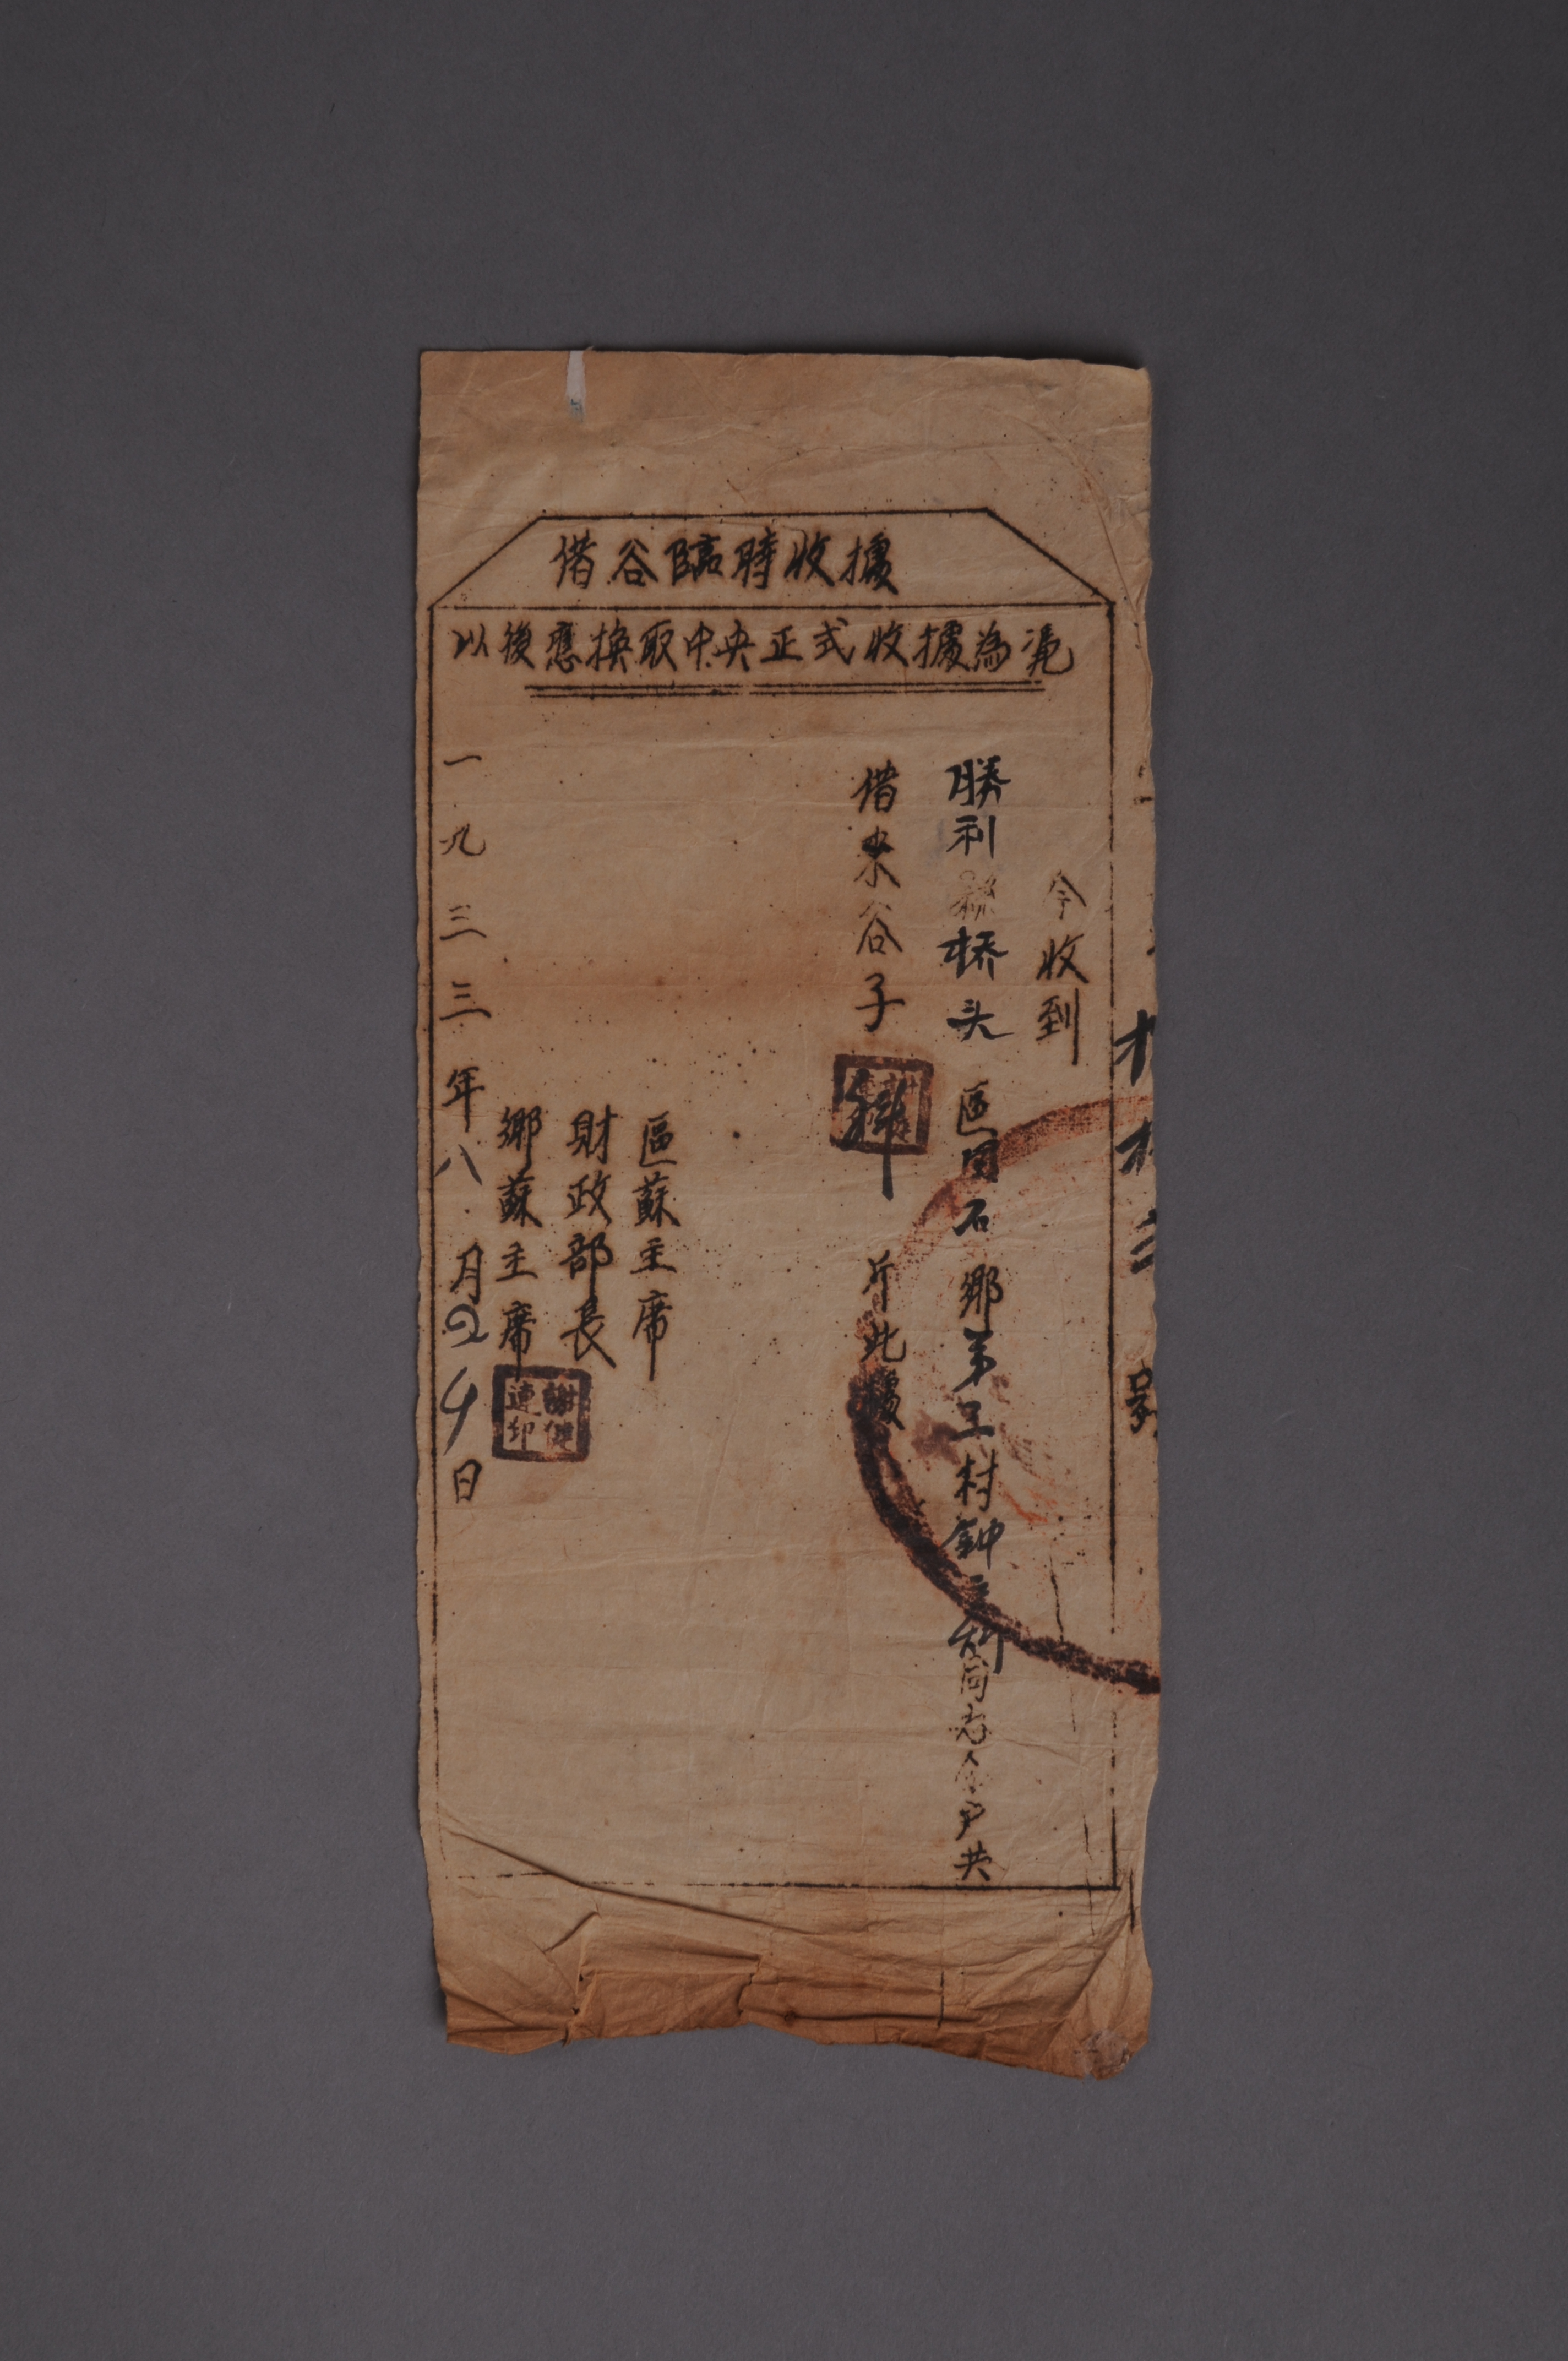 借谷臨時收據
以後應換取中央正式收據為凴
今收到
勝利縣桥头區田石鄉第三村鈡同志全户共
借來谷子斤此據
區蘇主席
財政部長
鄉蘇主席
謝健連印
一九三三年八月24日